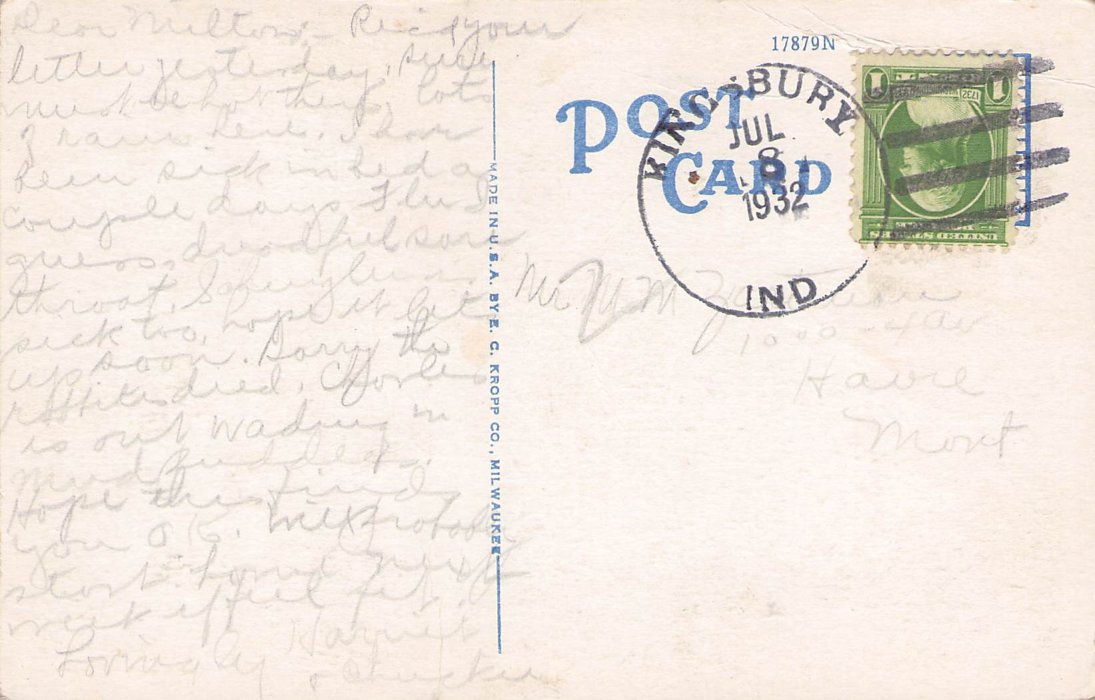 Dear Milton:- Rec'd your
letter yesterday, sure
must be hot there, lots
of rain here. I have
been sick in bed a
couple days Flu I
guess, dreadful sore
throat,
sick too, hope
up soon. Sorry the
rabbits died, Charles
is out wading in
mud puddles.
Hope this finds
you O.K. Will probably
start home next
week if feel fit.
Lovingly Harriet
& Chuckie
MADE IN U.S.A. BY E. C. KROPP CO., MILWAUKEE
17879N
POST
CARD
KINGSBURY
JUL
8
1932
IND
1 1
1732
Mr. M M
1000 - 4 av
Havre
Mont